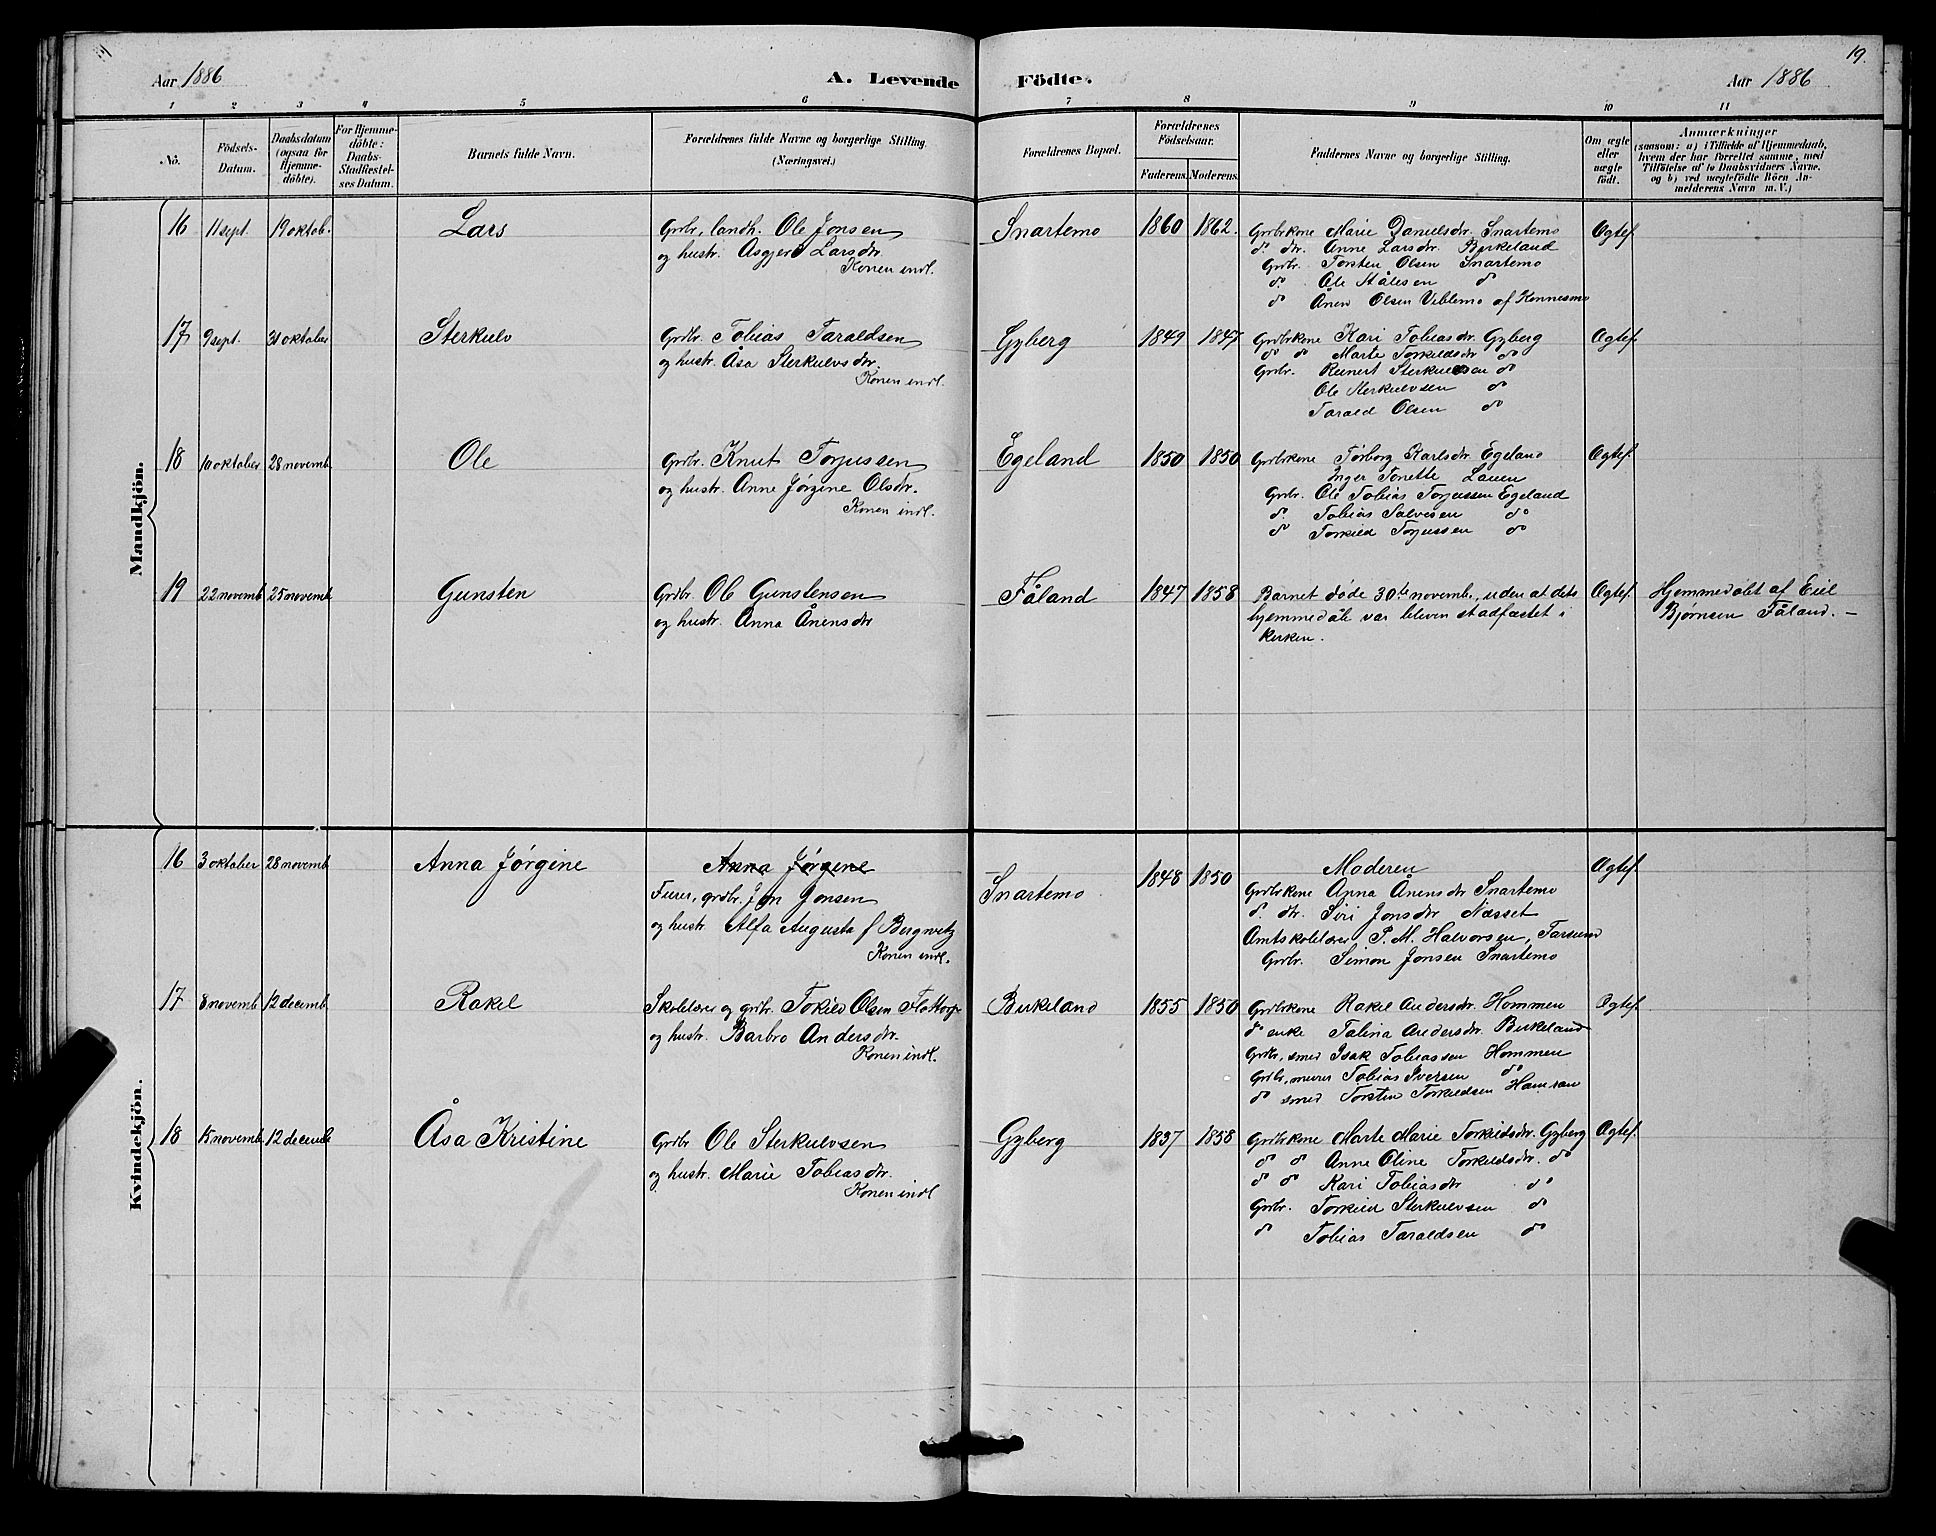 19.
Aar 1886
A. Levende Födte.
Aar 1886
1 2 3 4 5 6 7 8 9 10 11
No.
Födsels-
Datum.
Daabsdatum
(ogsaa for
Hjemme-
döbte).
For Hjemme-
döbte:
Daabs-
Stadfæstel-
ses Datum.
Barnets fulde Navn.
Forældrenes fulde Navne og borgerlige Stilling.
(Næringsvei.)
Forældrenes Bopæl.
Forældrenes
Födselsaar.
Faderens. Moderens.
Faddernes Navne og borgerlige Stilling.
Om ægte
eller
uægte
födt.
Anmærkninger
(saasom: a) i Tilfælde af Hjemmedaab,
hvem der har forrettet samme, med
Tilföielse af to Daabsvidners Navne,
og b) ved uægtefödte Börn An-
melderens Navn m.V.)
Mandkjön.
16 11 sept. 19 oktob. Lars
Grdbr, landh. Ole Jonsen
og hustr. Asgjerd Larsdtr
Konen indl.
Snartemo 1860 1862.
Grdbrkone Marie Danielsdr. Snartemo
do dtr. Anne Larsdr. Birkeland
Grdbr. Torsten Olsen Snartemo
do. Ole Stålesen do
do Ånen Olsen Veblemo af Konnesmo
Ægtef.
17 9 sept. 31 oktober Sterkulv
Grdbr. Tobias Taraldsen
og hustr. Åsa Sterkulvsdtr.
Konen indl.
Gyberg 1849 1847
Grdbrkone Kari Tobiasdr. Gyberg
do do Marte Torkildsdr do
Grdbr. Reinert Sterkulvsen do
Ole Sterkulvsen do
Tarald Olsen do
Ægtef.
18 10 oktober 28 novemb. Ole
Grdbr. Knut Torjussen
og hustr. Anne Jørgine Olsdr.
Konen indl.
Egeland 1850 1850
Grdbrkone Torborg Karlsdr. Egeland
Inger Tonette Lauen
Grdbr. Ole Tobias Torjussen Egeland
do. Tobias Salvesen do
do Torkild Torjussen do
Ægtef.
19 22 novemb 25 novemb Gunsten
Grdbr. Ole Gunstensen
og hustr. Anna Ånensdtr
Fåland 1847 1858
Barnet døde 30te novemb., uden at dets
hjemmedåb var bleven stadfæstet i
kirken.
Ægtef.
Hjemmedøbt af Eiel
Bjørnsen Fåland. –
Kvindekjön.
16 3 oktober 28 novemb Anna Jørgine
Anna Jørgine
Furer, grdbr. Jon Jonsen
og hustr. Alfa Augusta f Bergwitz
Konen indl.
Snartemo 1848 1850
Moderen
Grdbrkone Anna Ånensdtr Snartemo
do. dtr. Siri Jonsdtr Næsset
Amtskolelærer P. M. Halvorsen, Farsund
Grdbr. Simon Jonsen Snartemo
Ægtef.
17 8 novemb 12 decemb Rakel
Skolelærer og grdbr. Tokild Olsen Flottorp
og hustr. Barbro Andersdtr.
Konen indl.
Birkeland 1855 1850
Grdbrkone Rakel Andersdtr. Hommen
do enke Talina Andersdtr. Birkeland
Grdbr, smed Isak Tobiassen Hommen
Grdbr, murer Tobias Iversen do
do smed Torsten Torkildsen Hamran
Ægtef.
18 15 novemb 12 decemb Åsa Kristine
Grdbr Ole Sterkulvsen
og hustr. Marie Tobiasdtr.
Konen indl
Gyberg 1857 1858
Grdbrkone Marte Marie Torkildsdtr. Gyberg
do do Anne Oline Torkildsdtr. do
do do Kari Tobiasdtr do
Grdbr. Torkild Sterkulvsen do
do Tobias Taraldsen do
Ægtef.